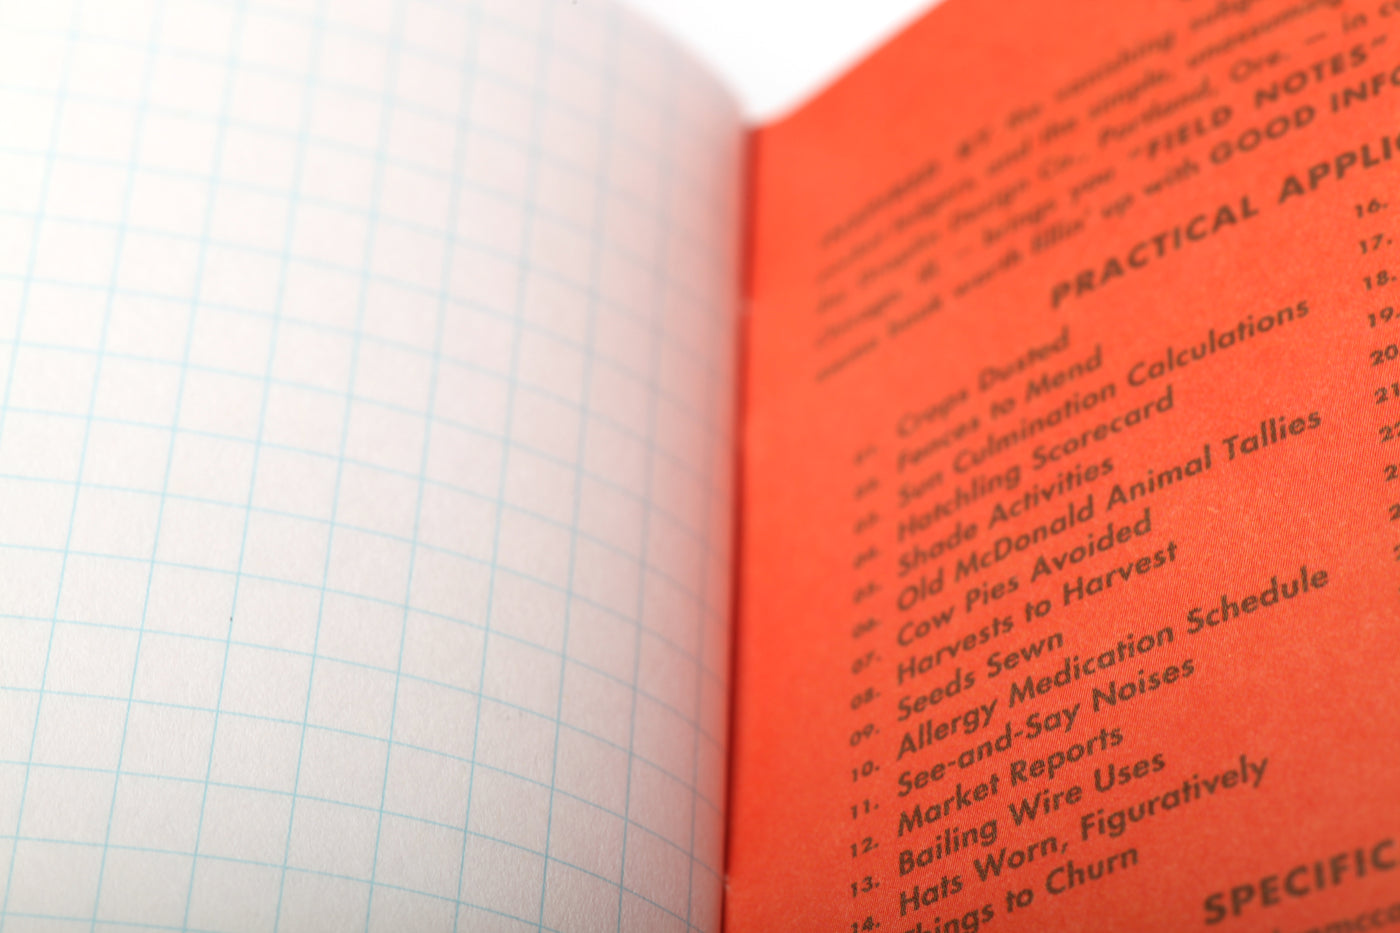 the vanishing
and the simple, unassuming
Design Co., Portland, Ore. — in
brings you "FIELD NOTES"
book worth fillin' up with GOOD INFO
PRACTICAL APPLIC
01. Crops Dusted
02. Fences to Mend
03. Sun Culmination Calculations
04. Hatchling Scorecard
05. Shade Activities
06. Old McDonald Animal Tallies
07. Cow Pies Avoided
08. Harvests to Harvest
09. Seeds Sewn
10. Allergy Medication Schedule
11. See-and-Say Noises
12. Market Reports
13. Bailing Wire Uses
14. Hats Worn, Figuratively
Things to Churn
16.
17.
18.
19.
20
21
SPECIFIC